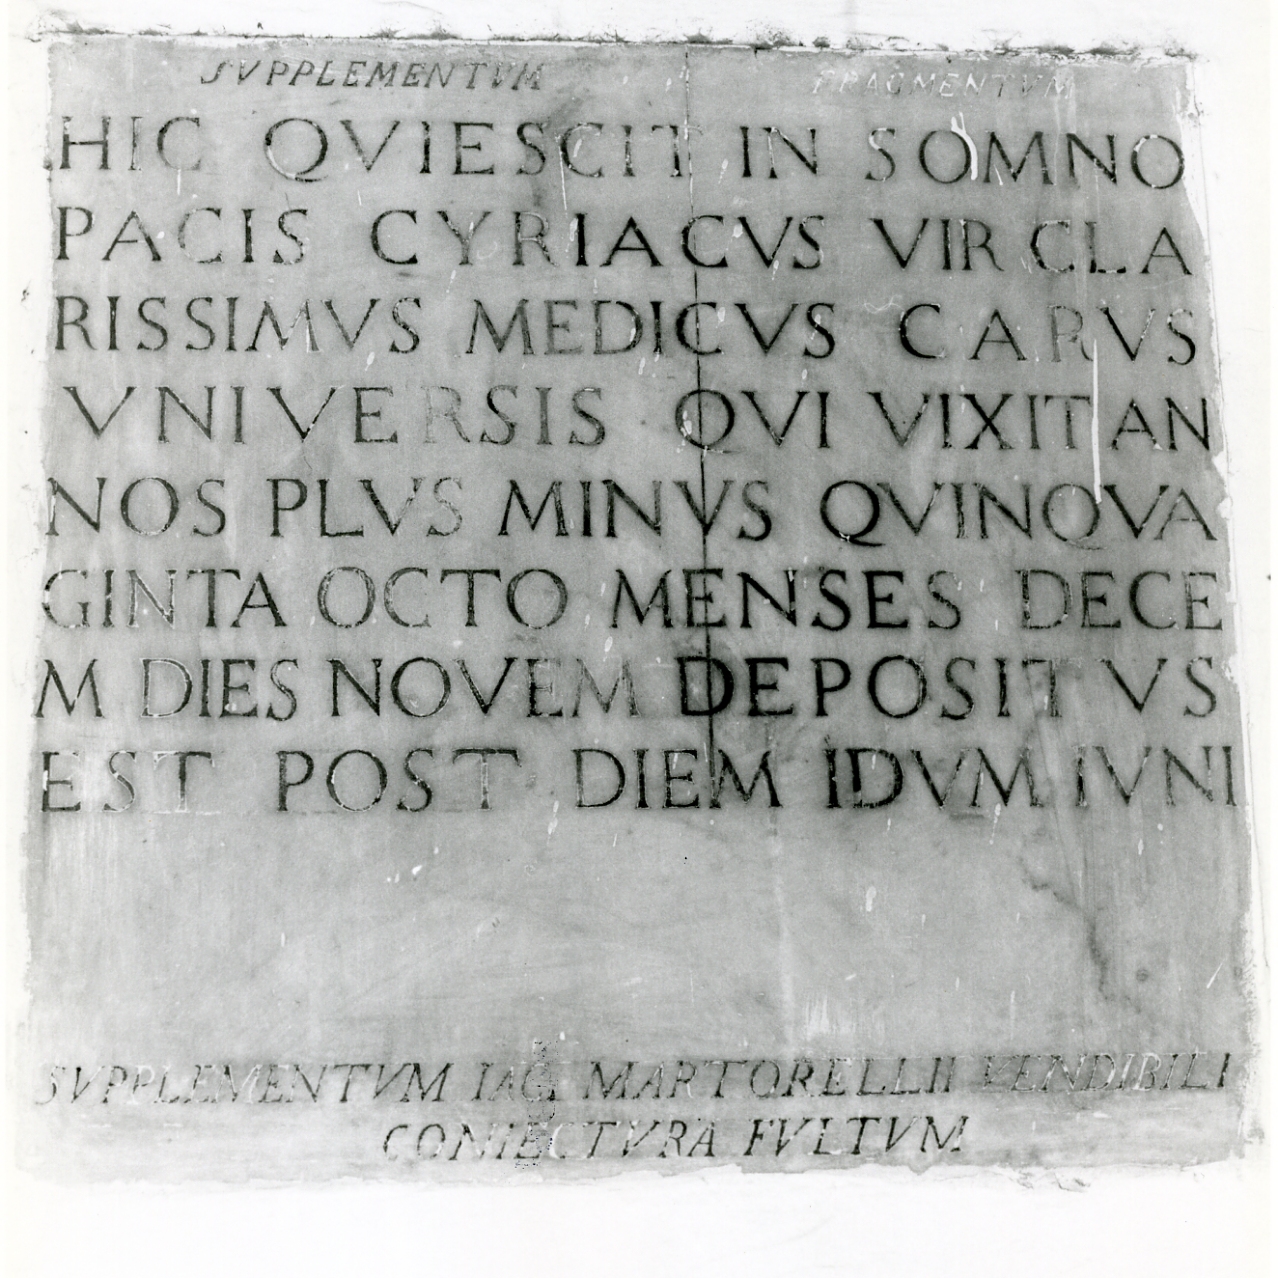 SVPPLEMENTVM FRAGMENTVM
HIC QVIESCIT IN SOMNO
PACIS CYRIACVS VIR CLA
RISSIMVS MEDICVS CARVS
VNIVERSIS QVI VIXIT AN
NOS PLVS MINVS QVINQVA
GINTA OCTO MENSES DECE
M DIES NOVEM DEPOSIT VS
EST POST DIEM IDVM IVNI
SVPPLEMENTVM IAC MARTORELLII VENDIBILI
CONIECTVRA FVLTVM